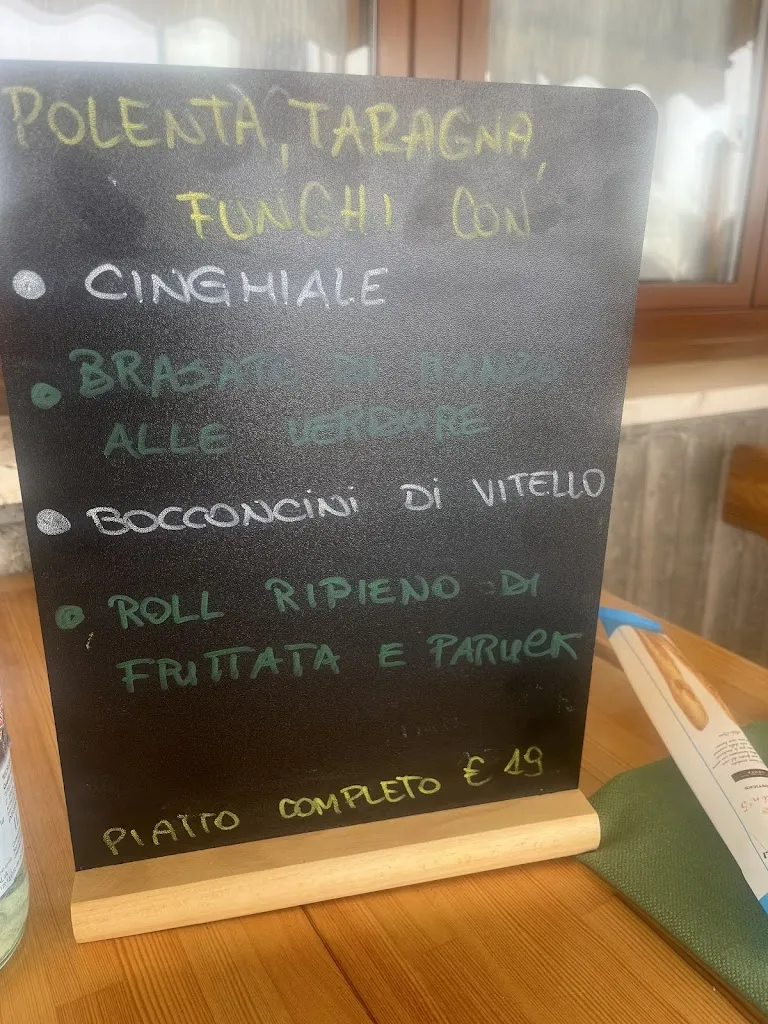 POLENTA, TARAGNA,
FUNGHI CON
• CINGHIALE
• BRASATO DI MANZO
ALLE VERDURE
• BOCCONCINI DI VITELLO
• ROLL RIPIENO DI
FRITTATA E PARUCK
PIATTO COMPLETO € 19